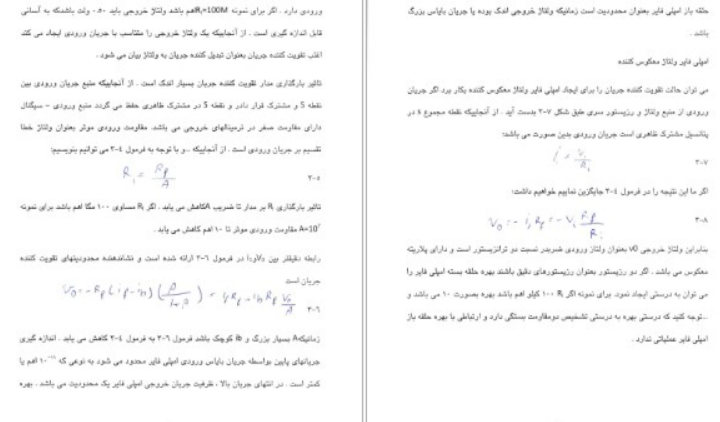 حلقه باز امپلی فایر بعنوان محدودیت است زمانیکه ولتاژ خروجی اندک بوده یا جریان بایاس بزرگ
باشد .
امپلی فایر ولتاژ معکوس کننده
می توان حالت تقویت کننده جریان را برای ایجاد امپلی فایر ولتاژ معکوس کننده بکار برد اگر جریان
ورودی از منبع ولتاژ و رزیستور سری طبق شکل ۷-۳ بدست آید . از آنجاییکه نقطه مجموع s در
پتانسیل مشترک ظاهری است جریان ورودی بدین صورت می باشد:
i = v₁/R₁ ۳-۷
اگر ما این نتیجه را در فرمول ۴-۳ جایگزین نماییم خواهیم داشت:
۳-۸
بنابراین ولتاژ خروجی v0 بعنوان ولتاژ ورودی ضربدر نسبت دو ترانزیستور است و دارای پلاریته
معکوس می باشد . اگر دو رزیستور بعنوان رزیستورهای دقیق باشند بهره حلقه بسته امپلی فایر را
می توان به درستی ایجاد نمود. برای نمونه اگر Rᵢ ۱۰۰ کیلو اهم باشد بهره بصورت ۱۰ می باشد و
..توجه کنید که درستی بهره به درستی تشخیص دومقاومت بستگی دارد و ارتباطی با بهره حلقه باز
امپلی فایر عملیاتی ندارد .
ورودی دارد . اگر برای نمونه 100M=اهم باشد ولتاژ خروجی باید ۰.۵۰ ولت باشدکه به آسانی
قابل اندازه گیری است . از آنجاییکه یک ولتاژ خروجی را متناسب با جریان ورودی ایجاد می کند
اغلب تقویت کننده جریان بعنوان تبدیل کننده جریان به ولتاژ بیان می شود .
تاثیر بارگذاری مدار تقویت کننده جریان بسیار اندک است . از آنجاییکه منبع جریان ورودی بین
نقطه S و مشترک قرار دادر و نقطه S در مشترک ظاهری حفظ می گردد منبع ورودی – سیگنال
دارای مقاومت صفر در ترمینالهای خروجی می باشد. مقاومت ورودی موثر بعنوان ولتاژ خطا
تقسیم بر جریان ورودی است . از آنجاییکه ..و با توجه به فرمول ۴-۳ می توانیم بنویسیم:
Rᵢ = Rf/A ۳-۵
تاثیر بارگذاری Rᵢ بر مدار تا ضریب Aکاهش می یابد . اگر Rᵢ مساوی ۱۰۰ مگا اهم باشد برای نمونه
A=10⁷ مقاومت ورودی موثر تا ۱۰ اهم کاهش می یابد .
رابطه دقیقتر بین در فرمول ۶-۳ ارائه شده است و نشاندهنده محدودیتهای تقویت کننده
جریان است
۳-۶
زمانیکهA بسیار بزرگ و ib کوچک باشد فرمول ۶-۳ به فرمول ۴-۳ کاهش می یابد . اندازه گیری
جریانهای پایین بواسطه جریان بایاس ورودی امپلی فایر محدود می شود به نوعی که اهم یا
کمتر است . در انتهای جریان بالا ، ظرفیت جریان خروجی امپلی فایر یک محدودیت می باشد . بهره